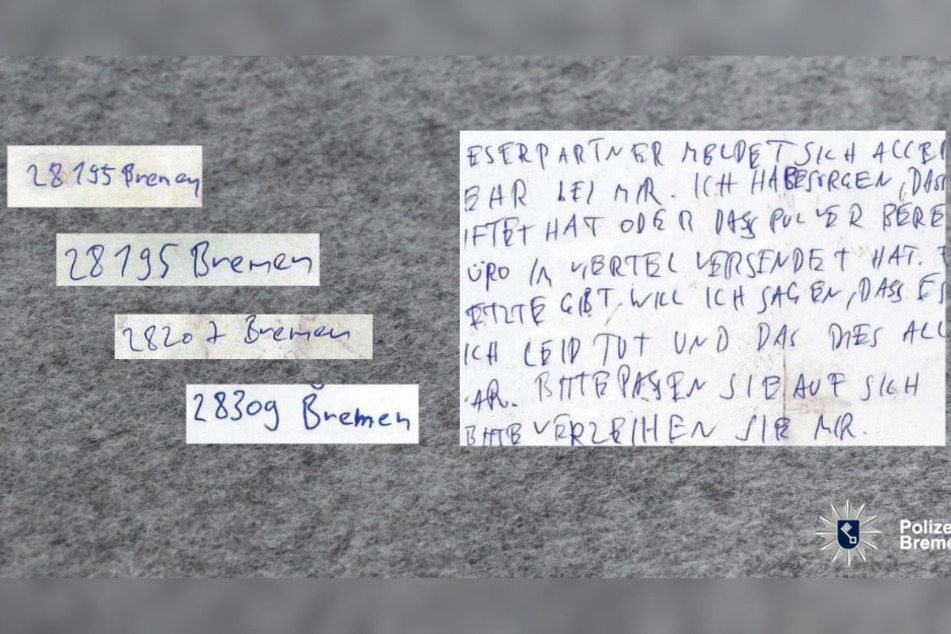 28195 Bremen
28195 Bremen
28207 Bremen
28309 Bremen
ESERPARTNER MELDET SICH ALLE
EHR BEI MIR. ICH HABE SORGEN, DASS
IFTET HAT ODER DASS PULVER BERE
ÜRO IM VIERTEL VERSENDET HAT.
ETZTE GIBT, WILL ICH SAGEN, DASS ES
ICH LEID TUT UND DAS DIES ALL
AR. BITTE PASSEN SIE AUF SICH
BITTE VERZEIHEN SIE MIR.
Polize
Breme